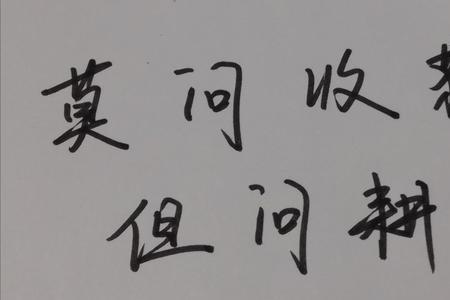 莫问收
但问耕